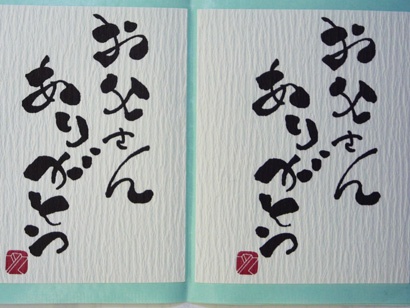 お父さん
ありがとう
お父さん
ありがとう